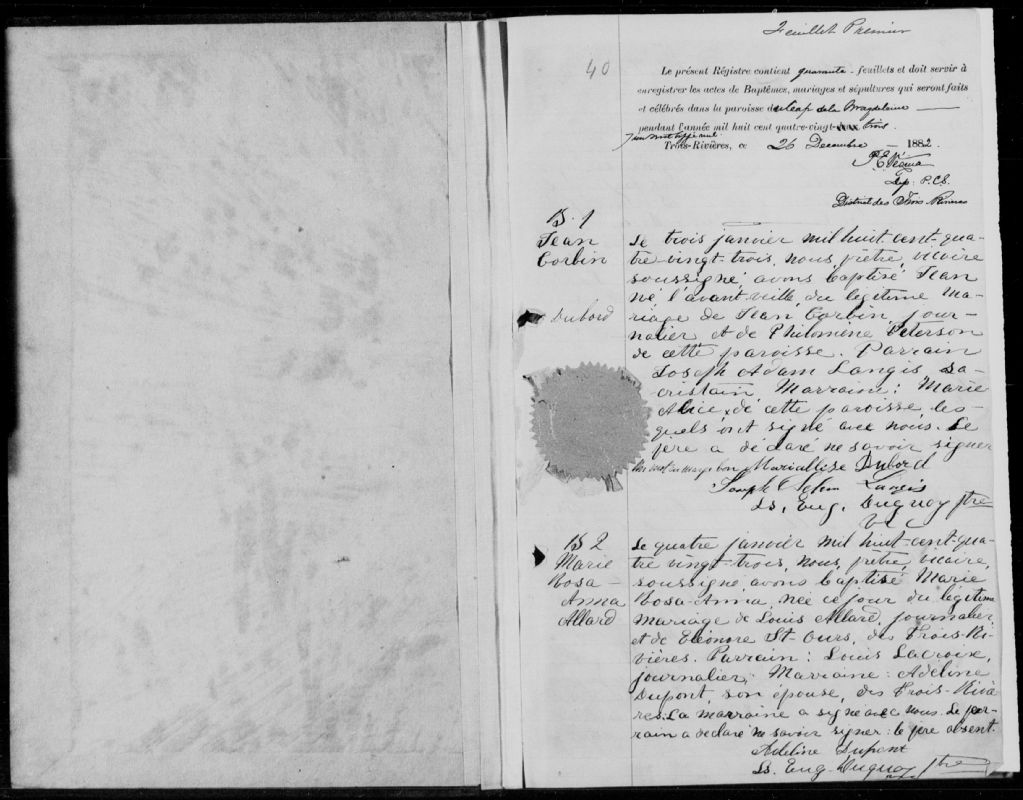 Feuillet Premier
40
Le présent Régistre contient quarante feuillets et doit servir à
enregistrer les actes de Baptêmes, mariages et sépultures qui seront faits
et célébrés dans la paroisse du Cap de la Magdeleine
pendant l'année mil huit cent quatre-vingt-deux trois.
Trois-Rivières, ce 26 Decembre 1882.
Dep. P.C.S.
District des Trois Rivières
B. 1
Jean
Corbin
Dubord
Le trois janvier mil huit-cent-qua-
tre-vingt-trois, nous prêtre, vicaire
soussigné, avons baptisé Jean
né l'avant-veille du légitime ma-
riage de Jean Corbin jour-
nalier et de Philomène Peterson
de cette paroisse. Parrain
Joseph Adam Langis sa-
cristain, Marraine: Marie
Alice x de cette paroisse les-
quels ont signé avec nous. Le
père a déclaré ne savoir signer
un mot en marge bon Mariallise Dubord
Joseph Adam Langis
Ls. Eug. Duguay Ptre
Vic
B 2
Marie
Rosa-
Anna
Allard
Le quatre janvier mil huit-cent-qua-
tre vingt-trois, nous, prêtre, vicaire,
soussigné avons baptisé Marie
Rosa-Anna, née ce jour du légitime
mariage de Louis Allard, journalier,
et de Eléonore St-Ours, des Trois-Ri-
vières. Parrain: Louis Lacroix,
journalier; Marraine: Adeline
Dupont son épouse, des Trois-Riviè
res. La marraine a signé avec nous. Le par-
rain a déclaré ne savoir signer: le père absent.
Adeline Dupont
Ls. Eug. Duguay Ptre